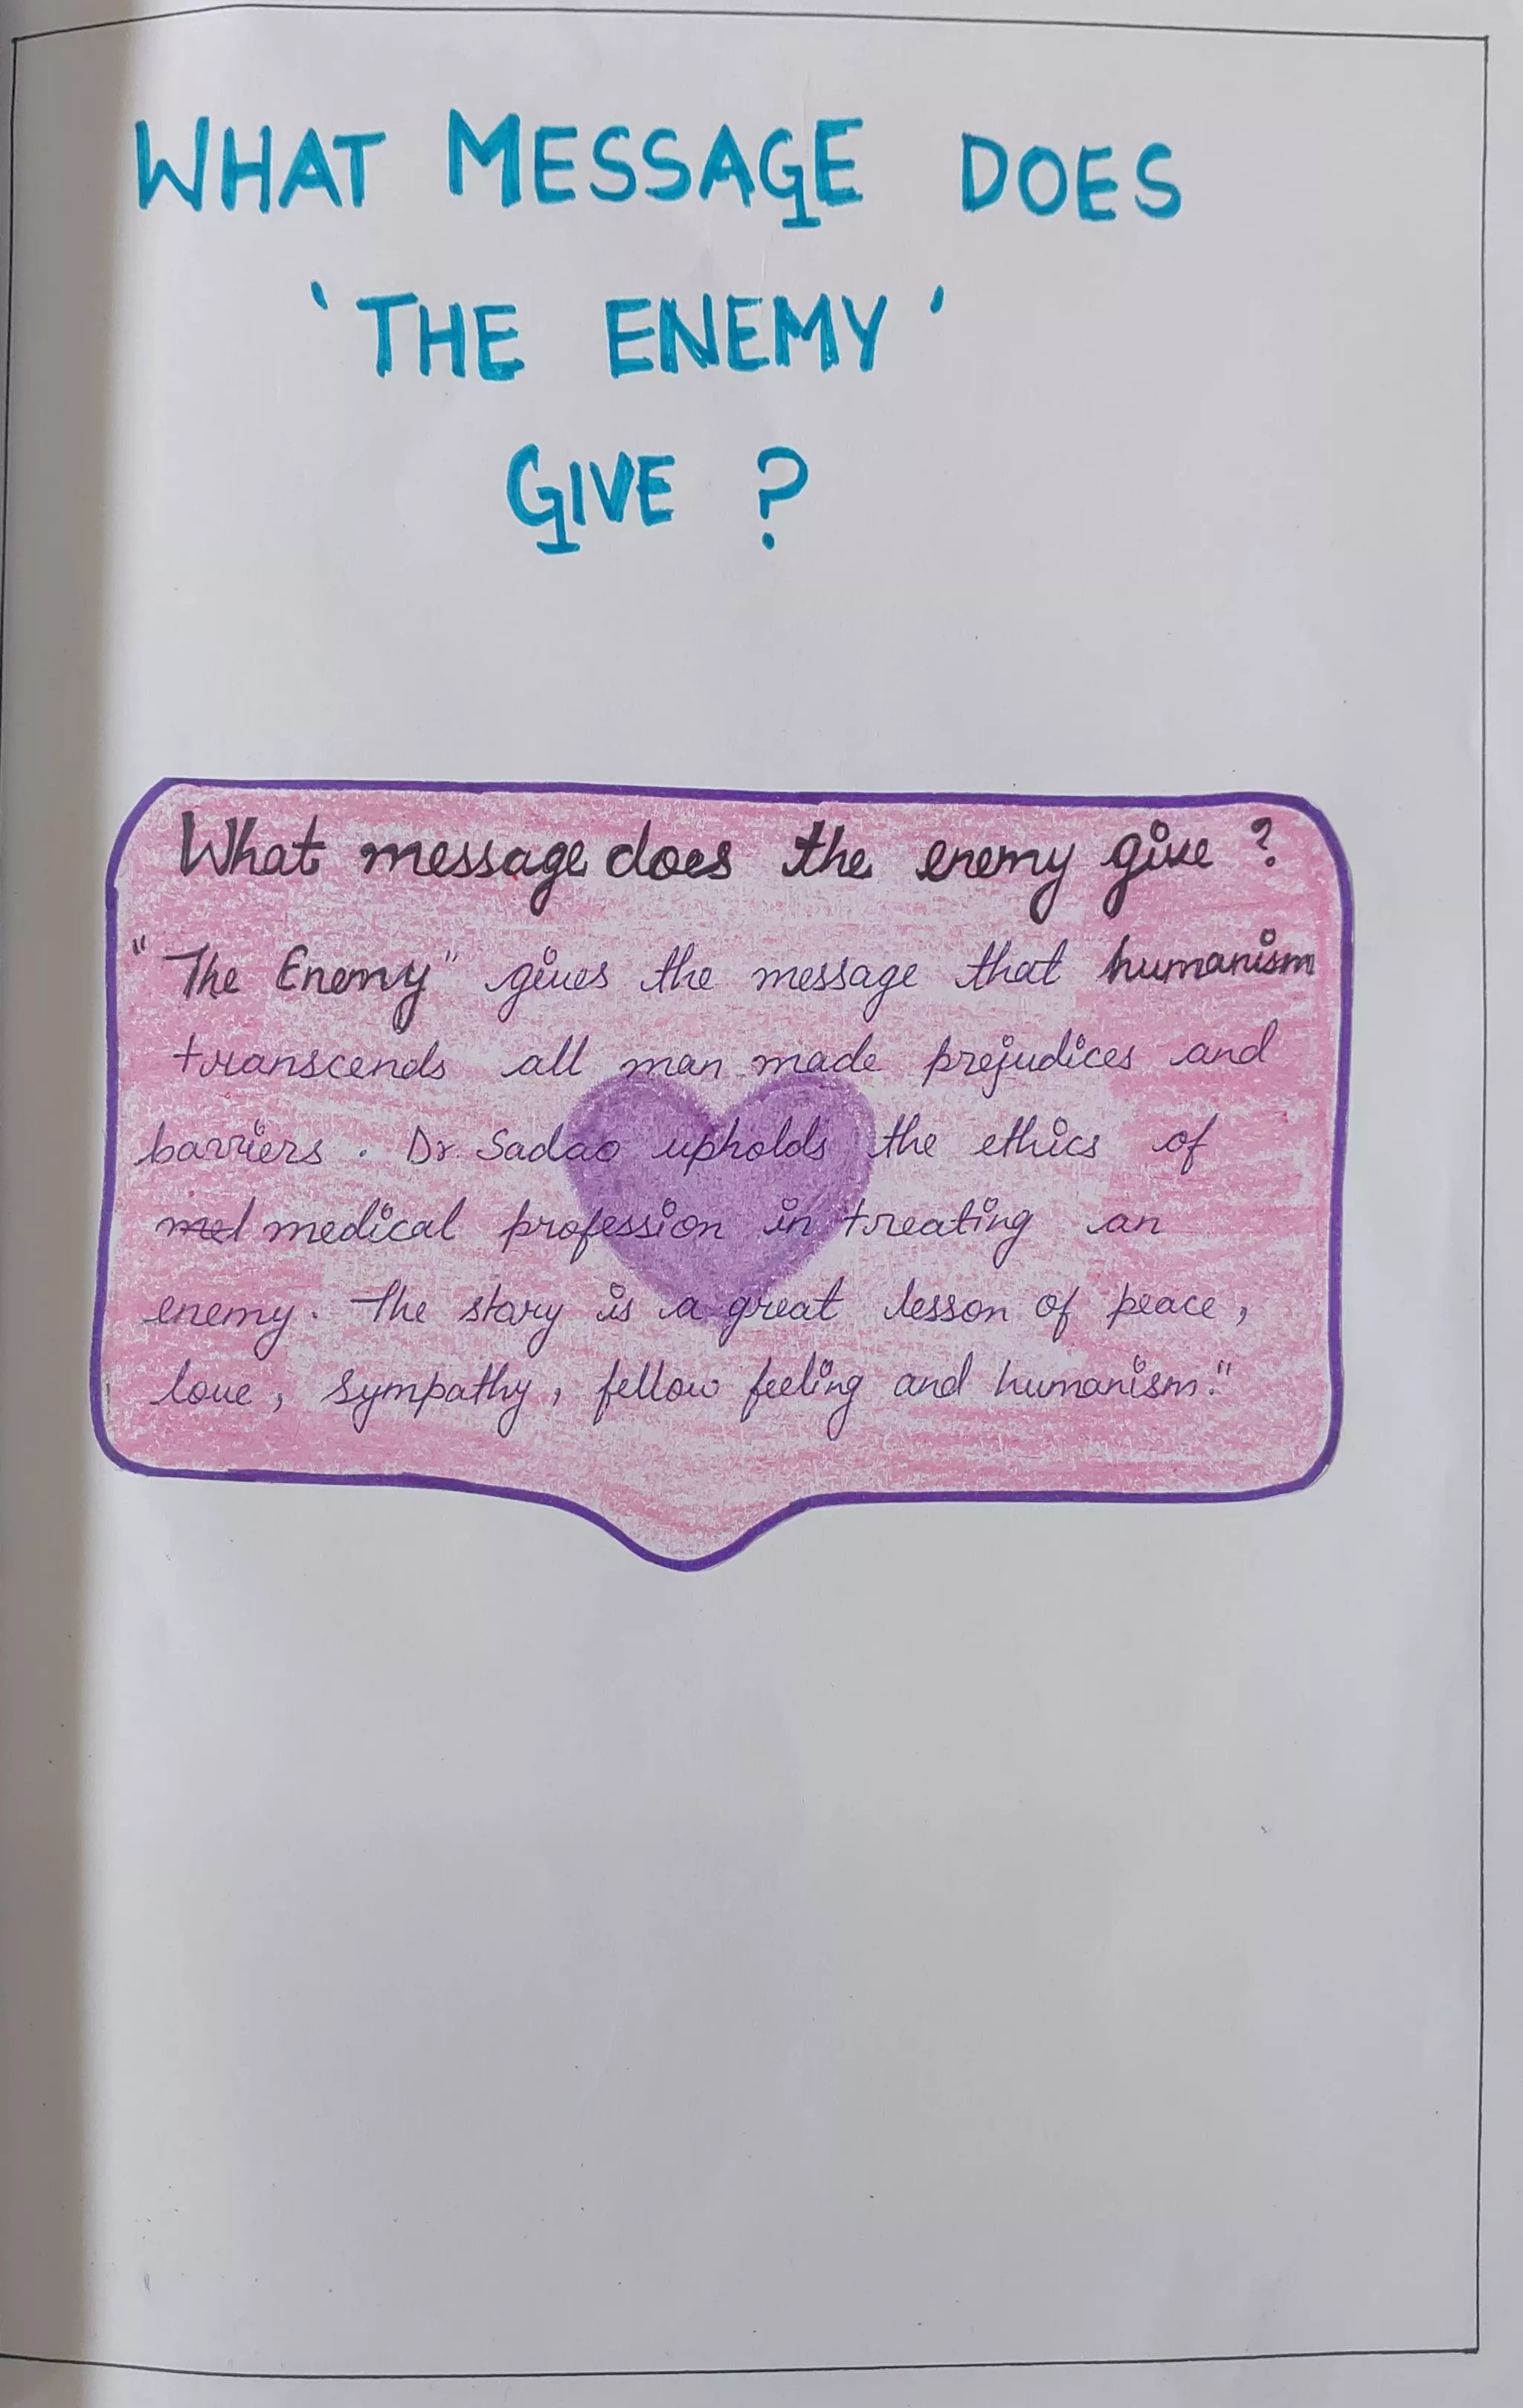 WHAT MESSAGE DOES
'THE ENEMY'
GIVE ?
What message does the enemy give ?
"The Enemy" gives the message that humanism
transcends all man made prejudices and
barriers. Dr. Sadao upholds the ethics of
medical profession in treating an
enemy. The story is a great lesson of peace,
love, sympathy, fellow feeling and humanism."